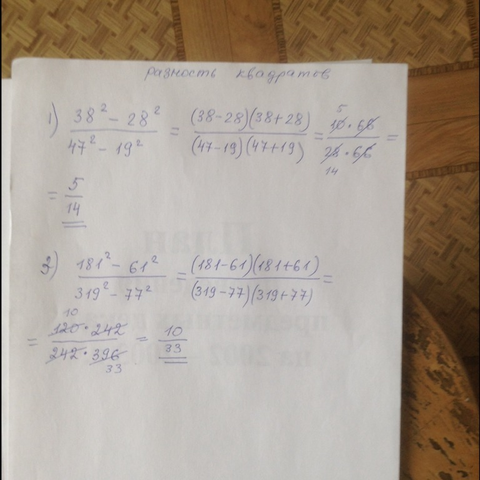 разность квадратов
1) (38² - 28²)/(47² - 19²) = ((38-28)(38+28))/((47-19)(47+19)) = (10 · 66)/(28 · 66) =
5
14
= 5/14
2) (181² - 61²)/(319² - 77²) = ((181-61)(181+61))/((319-77)(319+77)) =
10
= (120 · 242)/(242 · 396) = 10/33
33
План